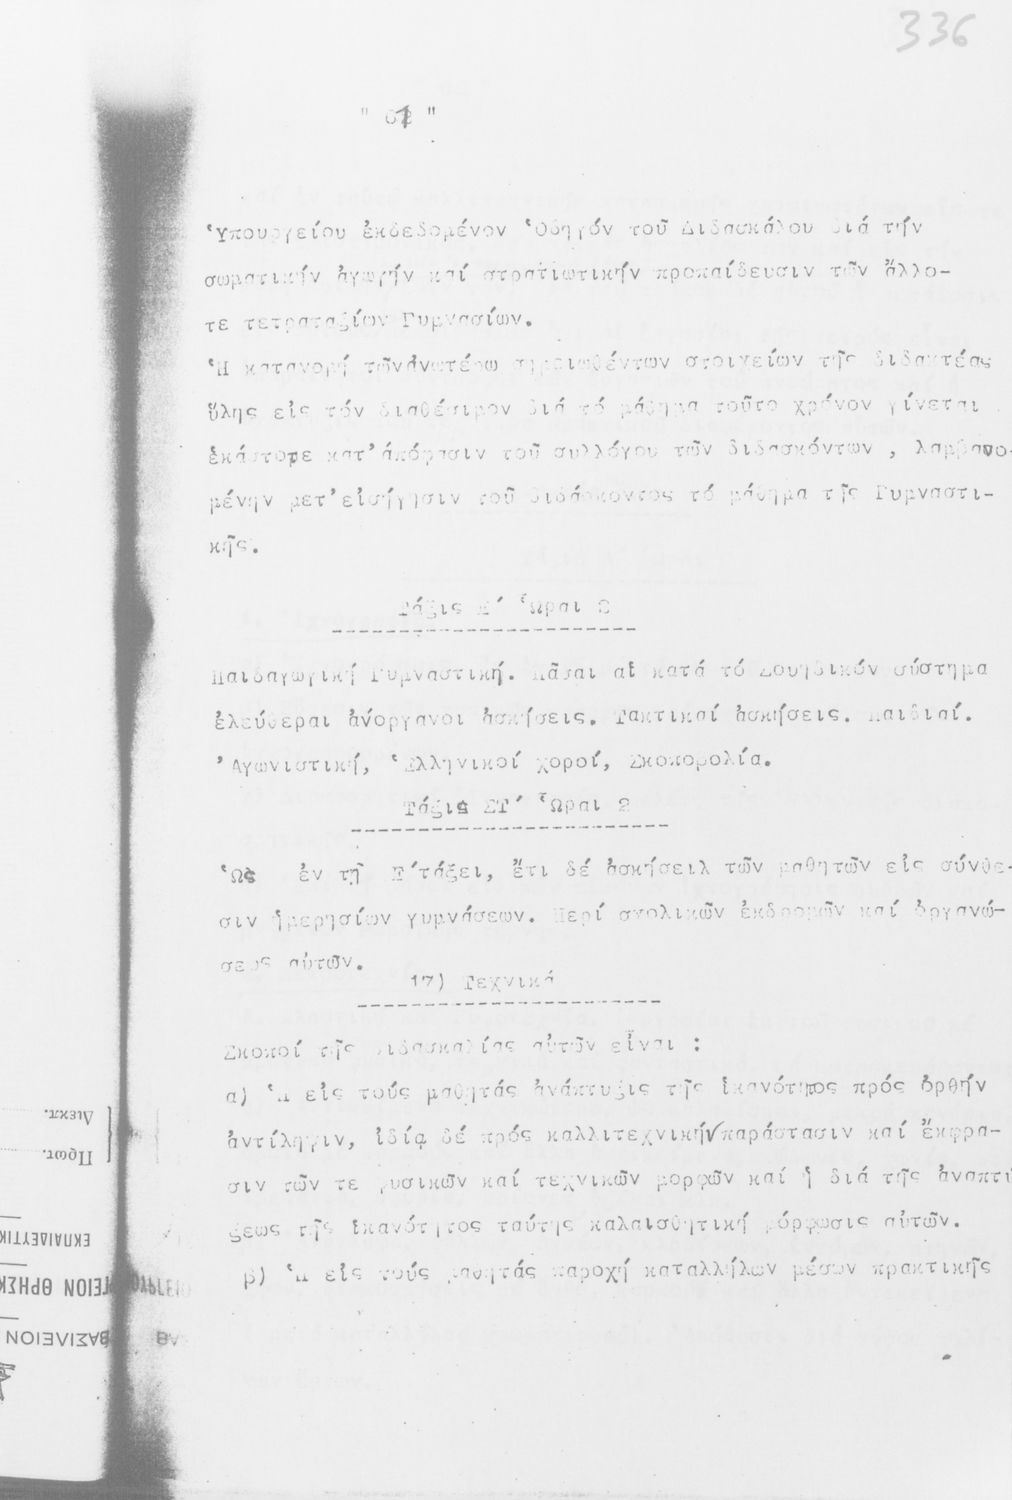 336
" 61 "
Ὑπουργείου ἐκδεδομένον Ὁδηγόν τοῦ Διδασκάλου διά τήν
σωματικήν ἀγωγήν καί στρατιωτικήν προπαίδευσιν τῶν ἄλλο-
τε τετραταξίων Γυμνασίων.
Ἡ κατανομή τῶνἀνωτέρω σημειωθέντων στοιχείων τῆς διδακτέας
ὕλης εἰς τόν διαθέσιμον διά τό μάθημα τοῦτο χρόνον γίνεται
ἑκάστοτε κατ'ἀπόφασιν τοῦ συλλόγου τῶν διδασκόντων , λαμβανο-
μένην μετ'εἰσήγησιν τοῦ διδάσκοντος τό μάθημα τῆς Γυμναστι-
κῆς.
Τάξις Ε΄ Ὧραι 2
Παιδαγωγική Γυμναστική. Πᾶσαι αἱ κατά τό Σουηδικόν σύστημα
ἐλεύθεραι ἀνόργανοι ἀσκήσεις. Τακτικαί ἀσκήσεις. Παιδιαί.
Ἀγωνιστική, Ἑλληνικοί χοροί, Σκοποβολία.
Τάξις ΣΤ΄ Ὧραι 2
Ὡς ἐν τῇ Ε΄τάξει, ἔτι δέ ἀσκήσειλ τῶν μαθητῶν εἰς σύνθε-
σιν ἡμερησίων γυμνάσεων. Περί σχολικῶν ἐκδρομῶν καί ὀργανώ-
σεως αὐτῶν.
17) Τεχνικά
Σκοποί τῆς διδασκαλίας αὐτῶν εἶναι :
α) Ἡ εἰς τούς μαθητάς ἀνάπτυξις τῆς ἱκανότητος πρός ὀρθήν
ἀντίληψιν, ἰδίᾳ δέ πρός καλλιτεχνικήν παράστασιν καί ἔκφρα-
σιν τῶν τε φυσικῶν καί τεχνικῶν μορφῶν καί ἡ διά τῆς ἀναπτύ
ξεως τῆς ἱκανότητος ταύτης καλαισθητική μόρφωσις αὐτῶν.
β) Ἡ εἰς τούς μαθητάς παροχή καταλλήλων μέσων πρακτικῆς
Διεκπ.
Πρωτ.
ΕΚΠΑΙΔΕΥΤΙΚ
ΘΡΗΣΚ
ΒΑΣΙΛΕΙΟΝ